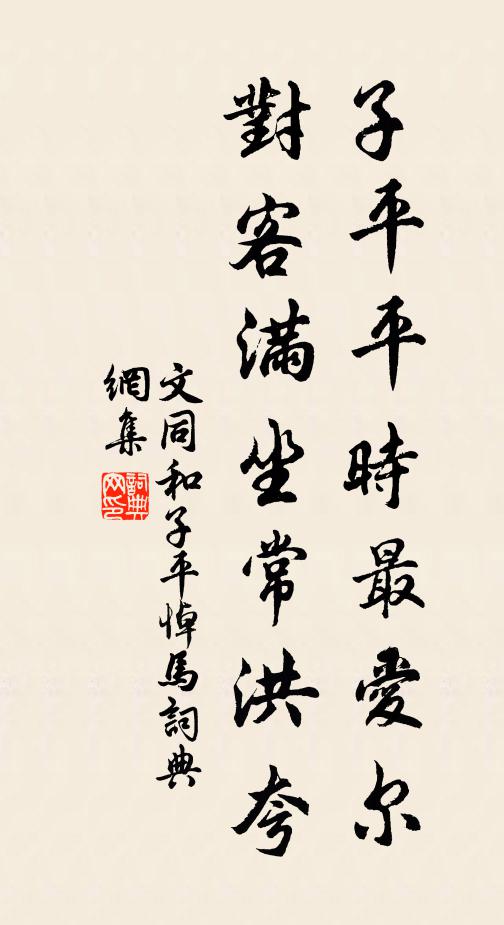 子平平時最愛尔
對客滿坐常洪夸
文同和子平悼馬詞典
網集
詞典
网印